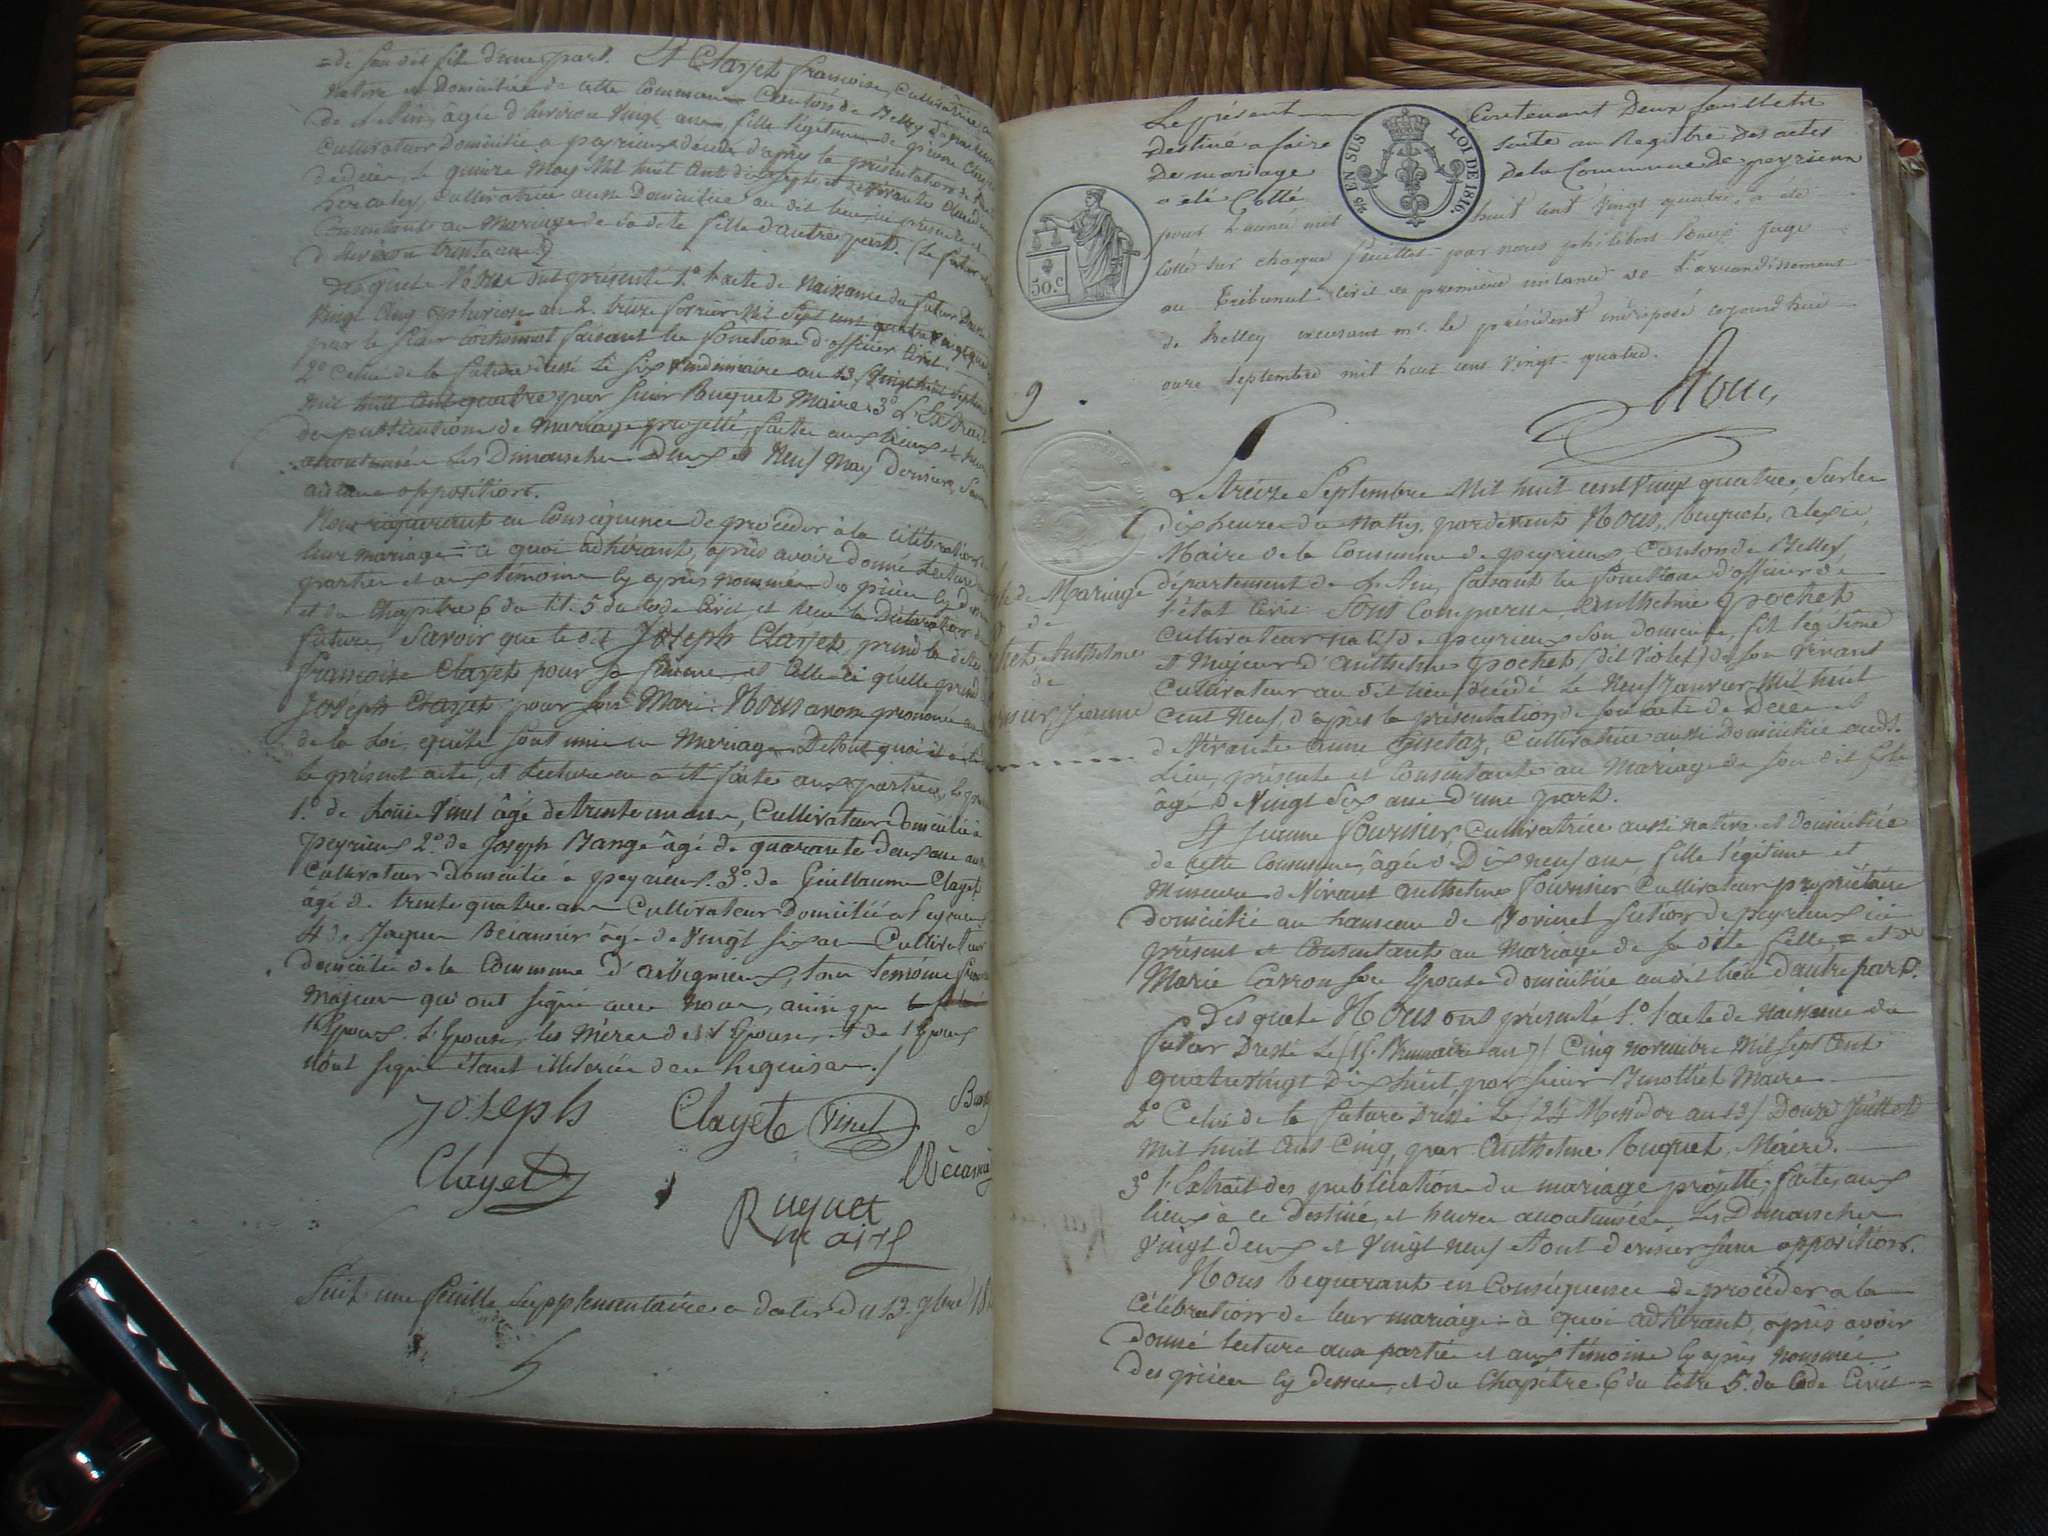 = de son dit fils d'une part. Et Clayet françoise, Cultivatrice
native et Domiciliée de cette Commune Canton de Belley Département
de L'Ain, âgée d'environ Vingt ans, fille légitime de pierre Clayet
Cultivateur Domicilié a peyrieu décédé d'après la présentation de
de décès, le quinze May Mil huit Cent dix sept et de Vivante
Cultivatrice aussi Domiciliée au dit lieu ici présente et
Consentante au Mariage de sa dite fille d'autre part. (le futur
d'environ trente ans)
Lesquels Nous ont présenté 1.° l'acte de Naissance du futur Dressé
Vingt Cinq pluviose an 2. treize fevrier Mil Sept cent quatre vingt
par le sieur faisant les fonctions d'officier Civil.
2.° Celui de la future dressé le six Vendémiaire an 13, Vingt huit Septembre
mil huit Cent quatre par sieur Ruquet Maire. 3.° L'Extrait
des publications de Mariage projetté, faites aux lieux et heures
accoutumées les Dimanches Deux et Neuf May Dernier, Sans
aucune opposition.
Nous requerant en Conséquence de procéder à la célébration de
leur mariage = a quoi adhérant, après avoir donné lecture
parties et aux témoins cy après nommés des pièces cy dessus
et du Chapitre 6 du tit. 5 du Code Civil, et reçu la Déclaration des
futurs, Savoir que le dit Joseph Clayet prend la dite
françoise Clayet pour sa femme, et Celle-ci qu'elle prend
Joseph Clayet pour son Mari. Nous avons prononcé au
de la Loi, qu'ils sont unis en Mariage. De tout quoi il a été
le présent acte, et Lecture en a été faite aux parties, en
1.° de Louis Vinet âgé de trente un ans, Cultivateur Domicilié à
Peyrieux 2.° de Joseph Bange âgé de quarante deux ans
Cultivateur Domicilié à peyrieux. 3.° de Guillaume Clayet
âgé de trente quatre ans Cultivateur Domicilié a Peyrieux
4 de Jaques Becamier âgé de Vingt six ans Cultivateur
domicilié de la Commune d'arbignieux, tous témoins
Majeurs qui ont signé avec Nous, ainsi que
l'Epoux. L'Epouse, les Mères de l'Epouse, et de l'Epoux
n'ont signé étant illiterées de ce Requises./
Joseph Clayet Vinet
Clayet
Ruquet
maire
Suit une feuille Supplementaire a dater du 13 7bre 18
Le présent Contenant Deux feuillets
Destiné a faire suite au Registre Des actes
De mariage De la Commune de peyrieux
a été Cotté
pour l'année mil huit Cent Vingt quatre, a été
cotté sur chaque feuillet par nous philibert Roux juge
au Tribunal Civil de première instance de l'arrondissement
de Belley excusant mr. le président indisposé aujourd'hui
onze Septembre mil huit cent Vingt-quatre.
Roux,
25 EN SUS
LOI DE 1816.
50.c
9
acte de Mariage
de
Pochet Anthelme
de
fournier Jeanne
Le treize Septembre Mil huit cent Vingt quatre, Sur les
dix heures du Matin, par devant Nous, Ruquet, alexis,
Maire de la Commune de peyrieux Canton de Belley,
département de L'Ain, faisant les fonctions d'officier de
l'état Civil. Sont Comparus, Anthelme pochet
cultivateur natif de peyrieux son domicile, fils légitime
et Majeur d'Anthelme pochet (dit Violet) de son Vivant
cultivateur au dit lieu décédé Le Neuf Janvier Mil huit
Cent Neuf, d'après la présentation de son acte de Décès et
de Vivante anne Gisetaz, Cultivatrice aussi Domiciliée audt.
Lieu, présente et Consentante au Mariage de Son dit fils
âgé de Vingt Six ans d'une part.
Et Jeanne fournier, Cultivatrice aussi native et domiciliée
de cette Commune, âgée de Dix neuf ans, fille légitime et
Mineure de Vivant anthelme fournier Cultivateur propriétaire
domicilié au hameau de section de peyrieux ici
présent et Consentant au Mariage de sa dite fille = et de
Marie Carron son Epouse domiciliée au dit lieu d'autre part.
Lesquels Nous ont présenté 1.° l'acte de naissance du
futur Dressé Le (15. Brumaire an 7) Cinq novembre Mil Sept Cent
quatre Vingt Dix huit, par sieur Maire
2.° Celui de la future Dressé Le (24 Messidor an 13) Douze Juillet
Mil huit Cent Cinq, par Anthelme Ruquet, Maire.
3.° l'Extrait des publications du mariage projetté, faites aux
lieux à ce Destinés, et heures accoutumées, Les Dimanches
Vingt deux et Vingt neuf Aout dernier sans opposition.
Nous Requerant en Conséquence de procéder a la
Célébration de leur mariage = à quoi adhérant, après avoir
donné lecture aux parties et aux témoins cy après nommés
des pièces cy dessus, et du Chapitre 6 du titre 5. du Code Civil =